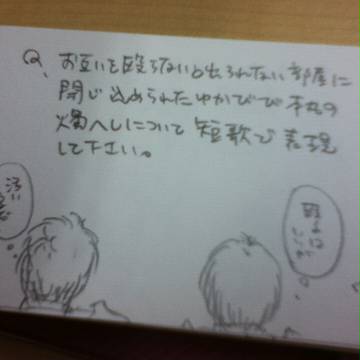 Q、お互いを殴らないと出られない部屋に
閉じ込められたゆかびび本丸の
燭へしについて短歌で表現
して下さい。